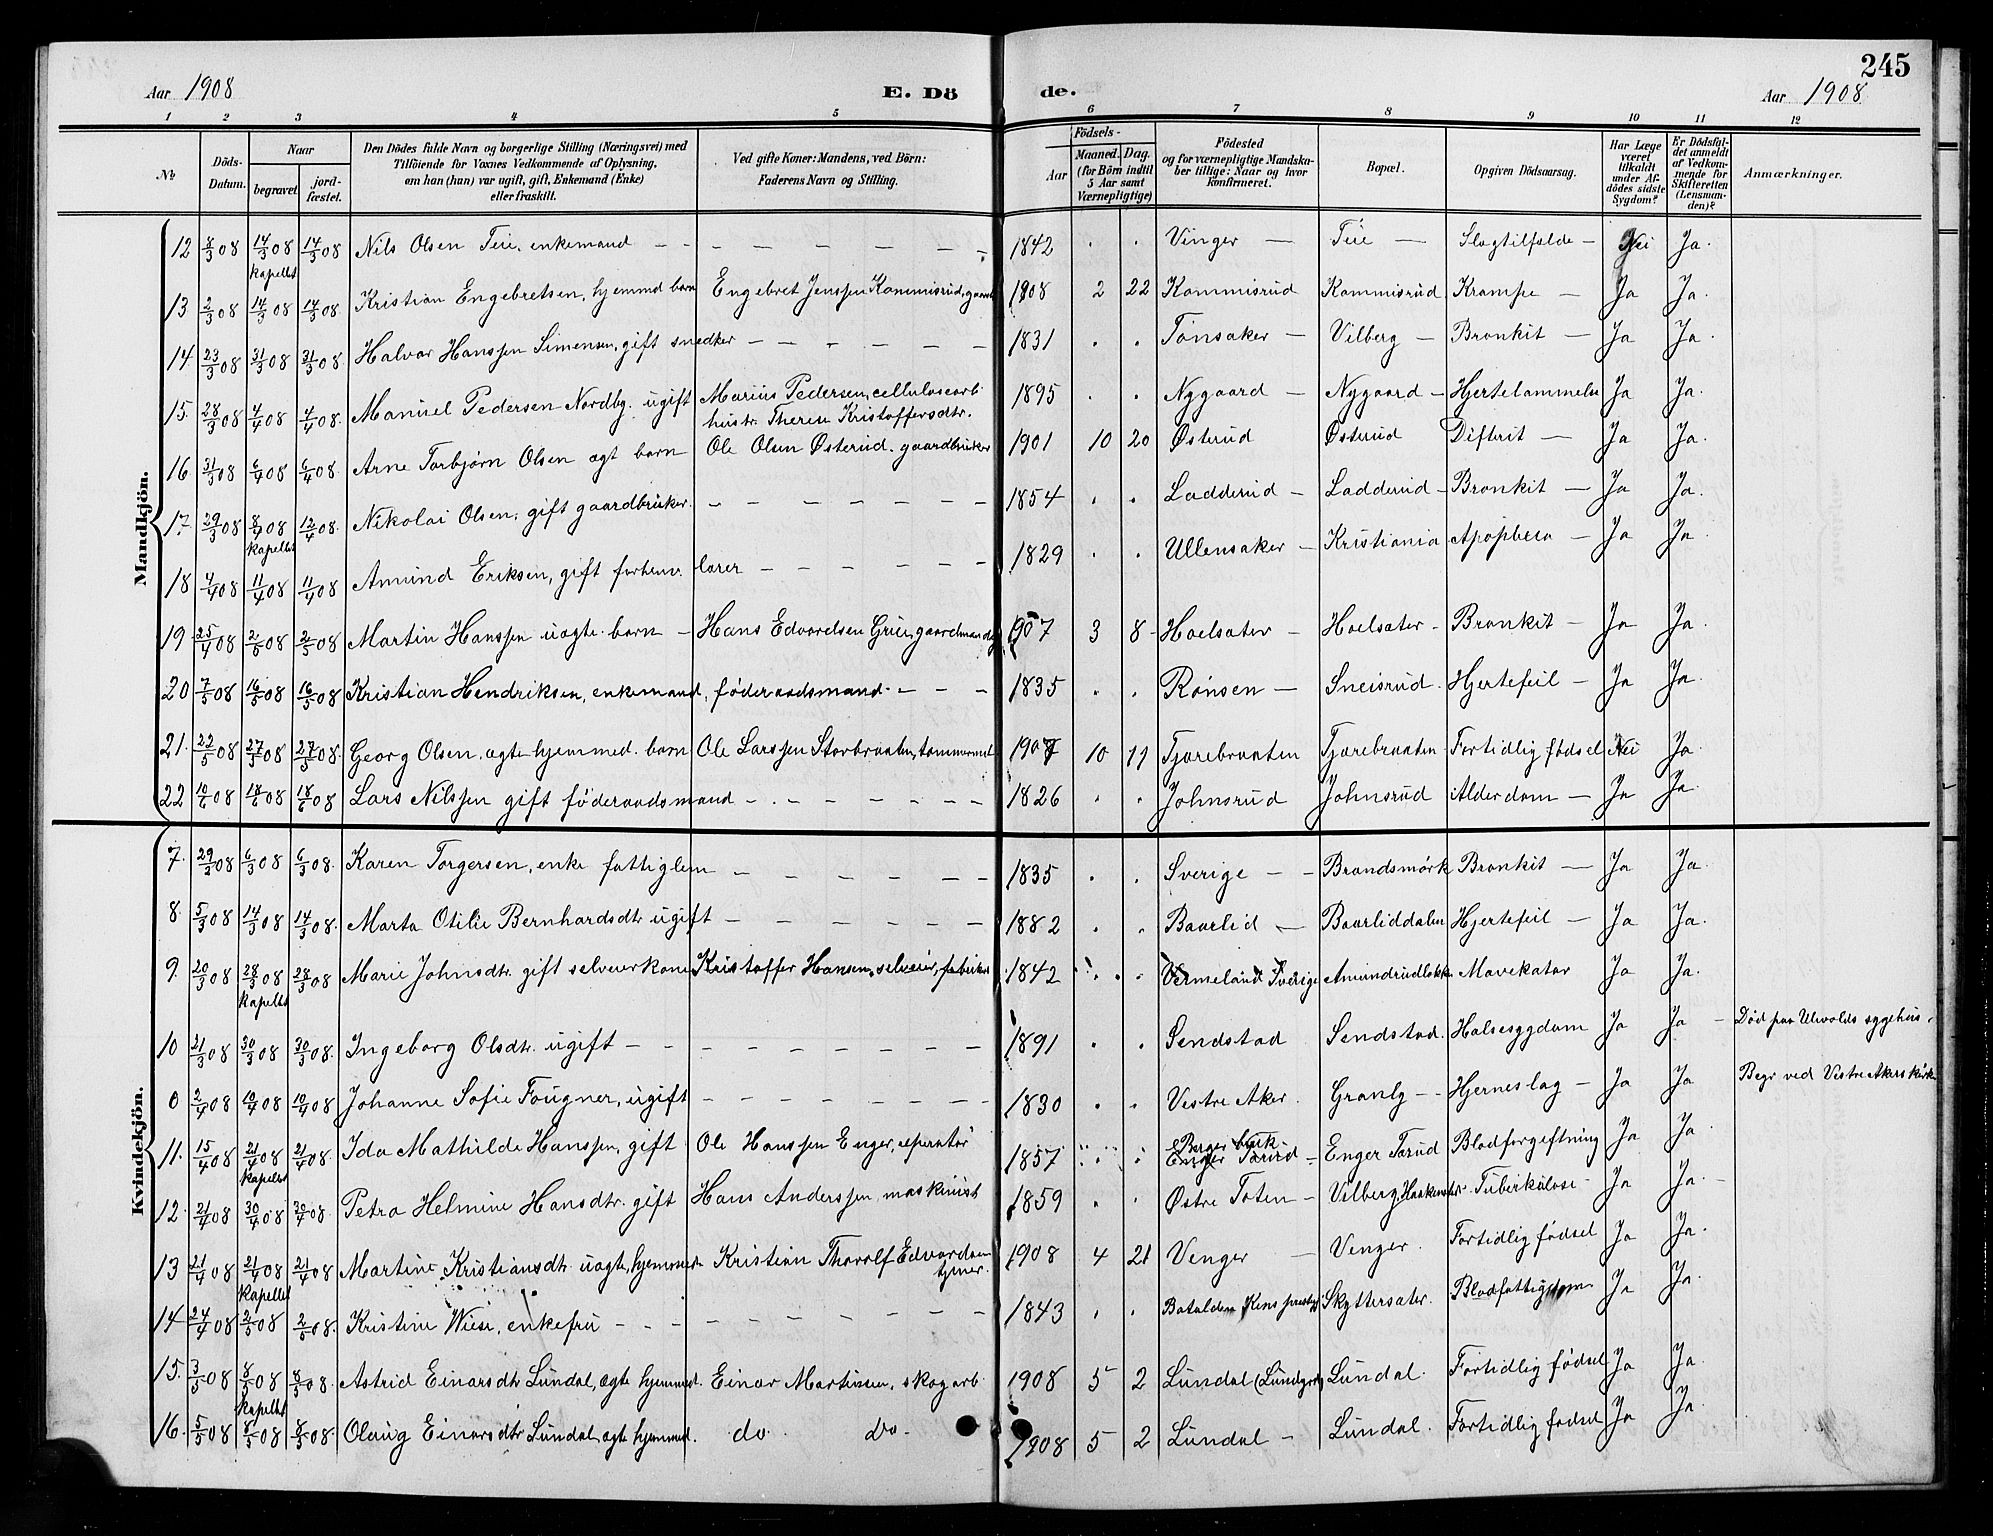 245
Aar 1908 E. Dö de. Aar 1908
1 2 3 4 5 6 7 8 9 10 11 12
№ Döds-Datum. Naar begravet. jord-fæstet. Den Dödes fulde Navn og borgerlige Stilling (Næringsvei) med Tilföiende for Voxnes Vedkommende af Oplysning, om han (hun) var ugift, gift, Enkemand (Enke) eller fraskilt. Ved gifte Koner: Mandens, ved Börn: Faderens Navn og Stilling. Födsels- Aar Maaned. Dag. (for Börn indtil 5 Aar samt Værnepligtige) Födested og for værnepligtige Mandska-ber tillige: Naar og hvor konfirmeret. Bopæl. Opgiven Dödsaarsag. Har Læge været tilkaldt under Af-dödes sidste Sygdom? Er Dödsfal-det anmeldt af Vedkom-mende for Skifteretten (Lensman-den)? Anmærkninger.
Mandkjön.
12 8/3 08 14/3 08 kapellet 14/3 08 Nils Olsen Teie, enkemand — 1842 Vinger — Teie — Slagtilfælde — Nei Ja.
13 2/3 08 14/3 08 14/3 08 Kristian Engebretsen, hjemmd barn Engebret Jenssen Kammisrud, 1908 2 22 Kammisrud Kammisrud Krampe — Ja Ja.
14 23/3 08 31/3 08 31/3 08 Halvor Hanssen Simensen, gift snedker — 1831 Tønsaker — Vilberg — Bronkit — Ja Ja.
15. 28/3 08 4/4 08 4/4 08. Manuel Pedersen Nordby. ugift Marius Pedersen, cellulosearb hustr. Therese Kristoffersdtr. 1895 Nygaard — Nygaard — Hjertelammelse Ja Ja.
16 31/3 08 6/4 08 6/4 08. Arne Torbjørn Olsen ægt barn Ole Olsen Østerud. gaardbruker 1901 10 20 Østerud Østerud Difterit — Ja Ja.
17. 29/3 08 8/4 08 kapellet 12/4 08. Nikolai Olsen, gift gaardbruker. — 1854 Ladderud — Ladderud — Bronkit — Ja Ja.
18 4/4 08 11/4 08 11/4 08 Amund Eriksen, gift forhenv. lærer — 1829 Ullensaker — Kristiania Apopleca — Ja Ja
19 25/4 08 2/5 08 2/5 08 Martin Hanssen uægte barn — Hans Edvardsen Grue, gaardmand 1907 3 8 - Hoelsæter — Hoelsæter — Bronkit — Ja Ja.
20 7/5 08 16/5 08 16/5 08 Kristian Hendriksen, enkemand, føderaadsmand — 1835 Rønsen — Sneisrud. Hjertefeil — Ja Ja.
21. 22/5 08 27/5 08 27/5 08. Georg Olsen, ægte hjemmed. barn Ole Larssen Storbraaten, tømmermd 1907 10 11 Tjærebraaten Tjærebraaten Fortidlig fødsel Nei Ja
22 10/6 08 18/6 08 18/6 08 Lars Nilssen gift føderaadsmand — 1826 Johnsrud Johnsrud Alderdom — Ja Ja
Kvindekjön.
7. 29/2 08 6/3 08 6/3 08. Karen Torgersen, enke fattiglem — 1835 Sverige — Brandsmørk Bronkit — Ja Ja.
8. 5/3 08 14/3 08 14/3 08. Marta Otilie Bernhardsdtr ugift — 1882 Baarlid — Baarliddalen Hjertefeil — Ja Ja.
9. 20/3 08 28/3 08 kapellet 28/3 08 Marie Johnsdtr. gift selveierkone Kristoffer Hansen, selveier, 1842 Vermeland Sverige Amundrudløkk. Mavekatar Ja Ja.
10 21/3 08 30/3 08 30/3 08. Ingeborg Olsdtr. ugift — 1891 Sendstad Sendstad. Halsesygdom Ja Ja — Død paa Ulvolds sygehus.
0 2/4 08 10/4 08 10/4 08. Johanne Sofie Fougner, ugift — 1830 Vestre Aker. Granly — Hjerneslag — Ja Ja Begr ved Vestre Akers kirk
11. 15/4 08 21/4 08 kapellet 21/4 08. Ida Mathilde Hanssen, gift Ole Hanssen Enger, reparatør 1857 Berger bruk Enger Torud — Enger Torud Blodforgeftning Ja Ja
12. 21/4 08 30/4 08 30/4 08. Petra Helmine Hansdtr. gift Hans Anderssen, maskinist 1859 Østre Toten — Vilberg, Tuberkulose — Ja Ja. —
13 21/4 08 21/4 08 kapellet 21/4 08 Martine Kristiansdtr uægte, hjemmed Kristian Thoralf Edvardsen 1908 4 21 Venger — Venger. Fortidlig fødsel Ja Ja.
14 24/4 08 2/5 08 2/5 08. Kristine Wiese, enkefru — 1843 Batalden Kins prestegj Skyttersæter. Blodfattigdom Ja Ja.
15. 3/5 08 8/5 08 kapellet 8/5 08. Astrid Einarsdtr Lundal, ægte hjemmed. Einar Martinsen, skogarb. 1908 5 2 Lundal Lundal. Fortidlig fødsel Ja Ja.
16. 5/5 08 8/5 08 8/5 08. Olaug Einarsdtr Lundal, ægte hjemmed. do. do. 1908 5 2 Lundal — Lundal. Fortidlig fødsel Ja Ja.